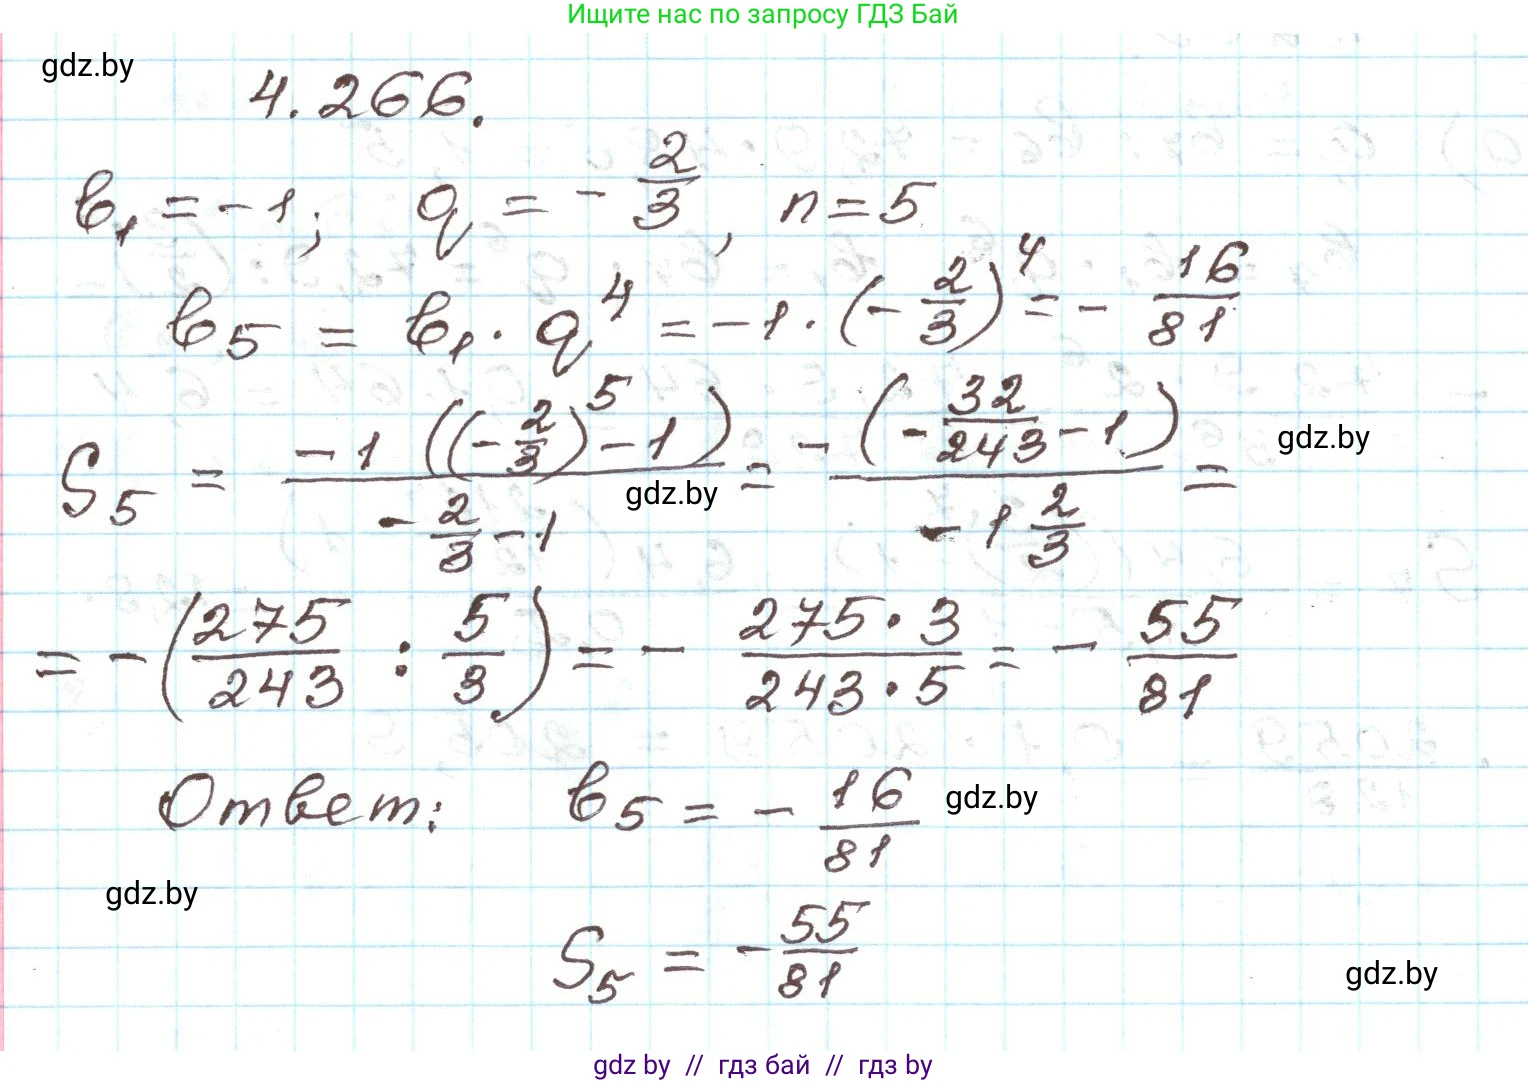 Ищите нас по запросу ГДЗ Бай
gdz.by
4.266.
b₁ = -1; q = -2/3, n = 5
b₅ = b₁ · q⁴ = -1 · (-2/3)⁴ = -16/81
S₅ = (-1((-2/3)⁵ - 1))/(-2/3 - 1) = (-(-32/243 - 1))/(-1 2/3) =
gdz.by
gdz.by
= -(275/243 : 5/3) = -(275 · 3)/(243 · 5) = -55/81
Ответ: b₅ = -16/81
gdz.by
gdz.by
S₅ = -55/81
gdz.by
gdz by // гдз бай // гдз by